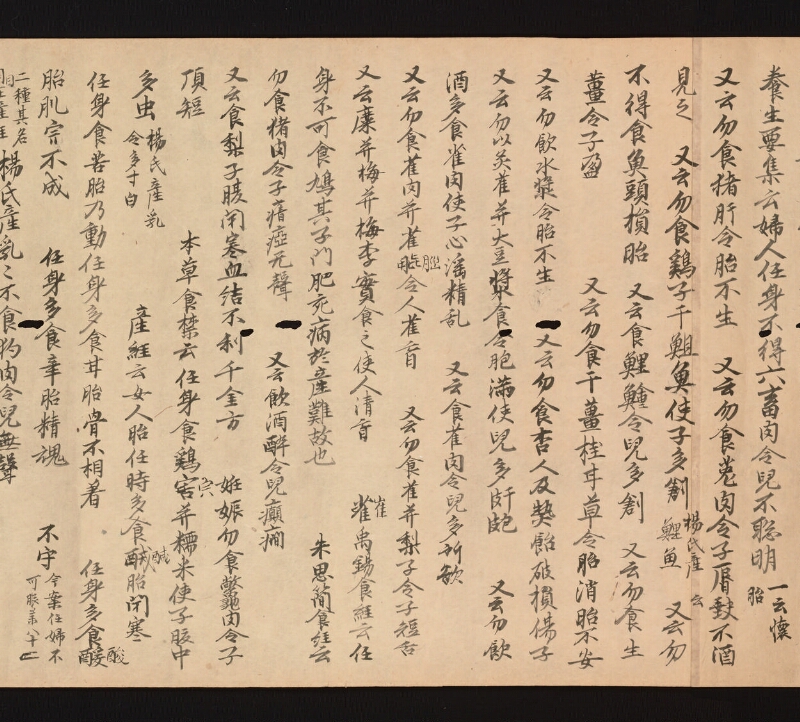 養生要集云婦人任身不得六畜肉令兒不聰明 一云懷胎
又云勿食猪肝令胎不生 又云勿食菟肉令子脣缺不酒
見之 又云勿食鷄子干鮑魚使子多創 楊氏産云鯉魚 又云勿
不得食魚頭損胎 又云食鯉鱠令兒多創 又云勿食生
薑令子盈 又云勿食干薑桂甘草令胎消胎不安
又云勿飲水漿令胎不生 又云勿食杏人及 飴破損傷子
又云勿以炙雀并大豆 食令胞滿使兒多 皰 又云勿飲
酒多食雀肉使子心淫精乱 又云食雀肉令兒多所欲
又云勿食雀肉并雀 令人雀盲 又云勿食雀并梨子令子短舌
又云麋并梅并梅李實食之使人清盲 崔禹錫食經云任
身不可食鳩其子門肥充病於産難故也 朱思簡食經云
勿食猪肉令子瘖瘂无聲 又云飲酒醉令兒癲癇
又云食梨子腠閇寒血結不利千金方 妊娠勿食鱉肉令子
項短 本草食禁云任身食鷄 并糯米使子腹中
多虫 楊氏産乳令多寸白 産經云女人胎任時多食鹹胎閇寒
任身食苦胎乃動任身多食甘胎骨不相着 任身多食酸
胎肌完不成 任身多食辛胎精魂 不守 今案任婦不可服藥八十二
二種其名 楊氏産乳云不食 肉令兒無聲